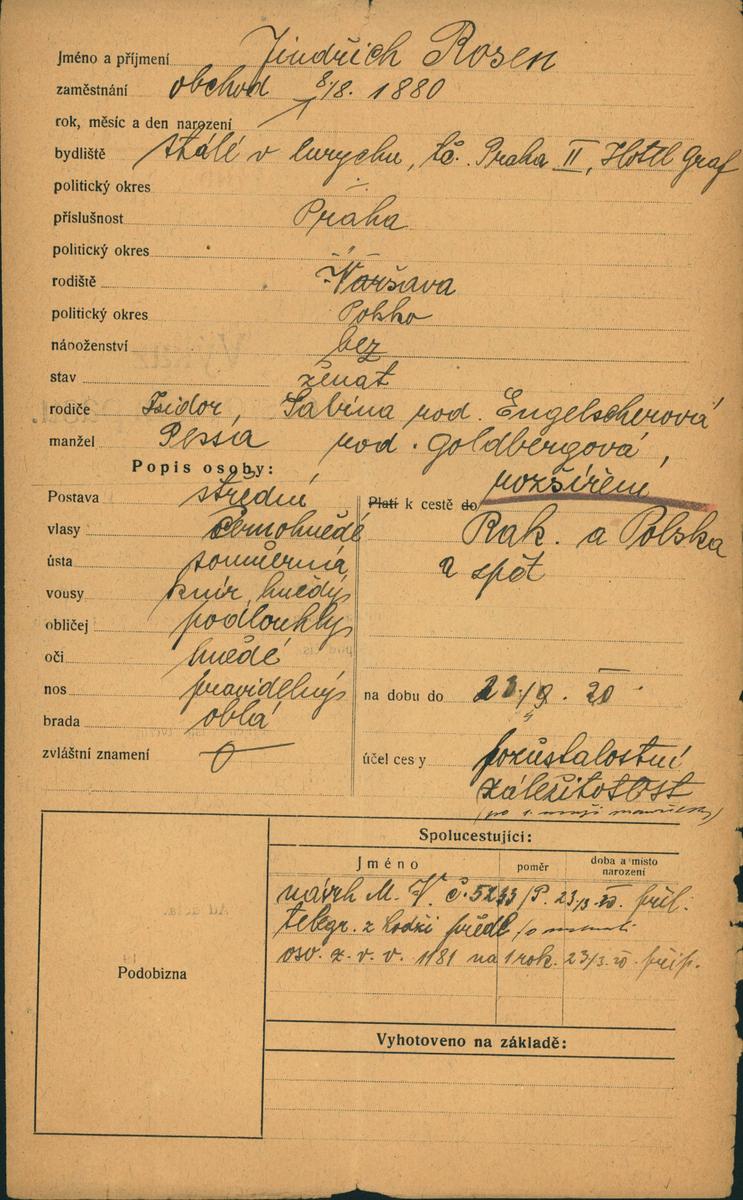 Jméno a příjmení Jindřich Rosen
zaměstnání obchod 8/8. 1880
rok, měsíc a den narození
bydliště stálé v Curychu, tč. Praha II, Hotel Graf
politický okres
příslušnost Praha
politický okres
rodiště Waršava
politický okres Polsko
náboženství bez
stav ženat
rodiče Isidor, Sabina rod. Engelscherová
manžel Pessia rod. Goldbergová,
Popis osoby:
Postava střední
vlasy černohnědé
ústa souměrná
vousy knír hnědý
obličej podlouhlý
oči hnědé
nos pravidelný
brada oblá
zvláštní znamení
rozšíření
Platí k cestě do
Rak. a Polska
a spět
na dobu do 23/9. 20
účel cesy pozůstalostní
záležitost
Podobizna
Spolucestující:
Jméno poměr doba a místo narození
návrh M. V. č. 5233/P. 23/3. 20 příl.
telegr. z Lodži předl.
osv. z. v. v. 1181 na 1 rok. 23/3. 20 přip.
Vyhotoveno na základě: